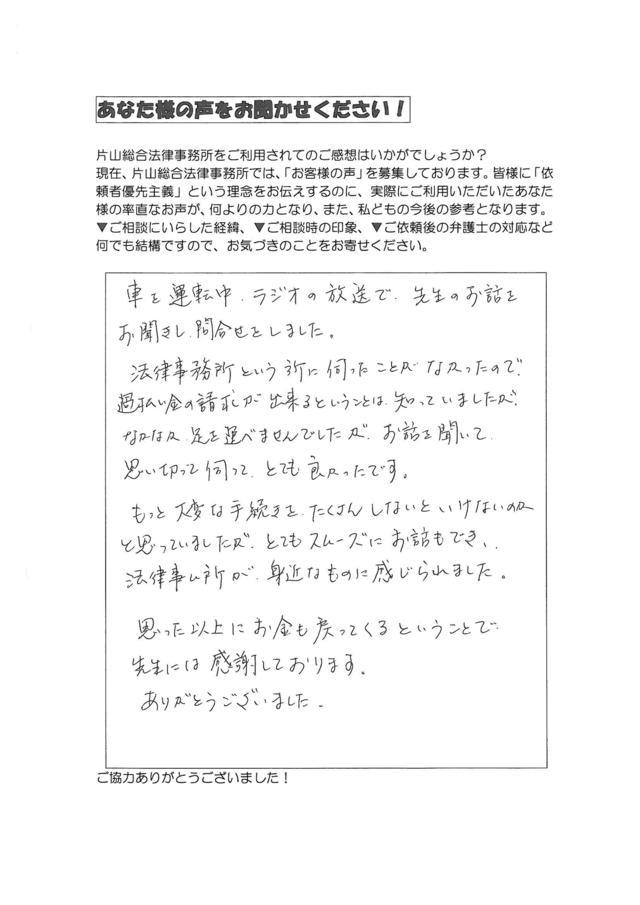 あなた様の声をお聞かせください！
片山総合法律事務所をご利用されてのご感想はいかがでしょうか？
現在、片山総合法律事務所では、「お客様の声」を募集しております。皆様に「依
頼者優先主義」という理念をお伝えするのに、実際にご利用いただいたあなた
様の率直なお声が、何よりの力となり、また、私どもの今後の参考となります。
▼ご相談にいらした経緯、▼ご相談時の印象、▼ご依頼後の弁護士の対応など
何でも結構ですので、お気づきのことをお寄せください。
車を運転中、ラジオの放送で、先生のお話を
お聞きし、問合せをしました。
法律事務所という所に伺ったことがなかったので、
過払い金の請求が出来るということは、知っていましたが、
なかなか足を運べませんでしたが、お話を聞いて、
思い切って伺って、とても良かったです。
もっと大変な手続きを、たくさんしないといけないのか
と思っていましたが、とてもスムーズにお話もでき、
法律事ム所が、身近なものに感じられました。
思った以上にお金も戻ってくるということで
先生には感謝しております。
ありがとうございました。
ご協力ありがとうございました！